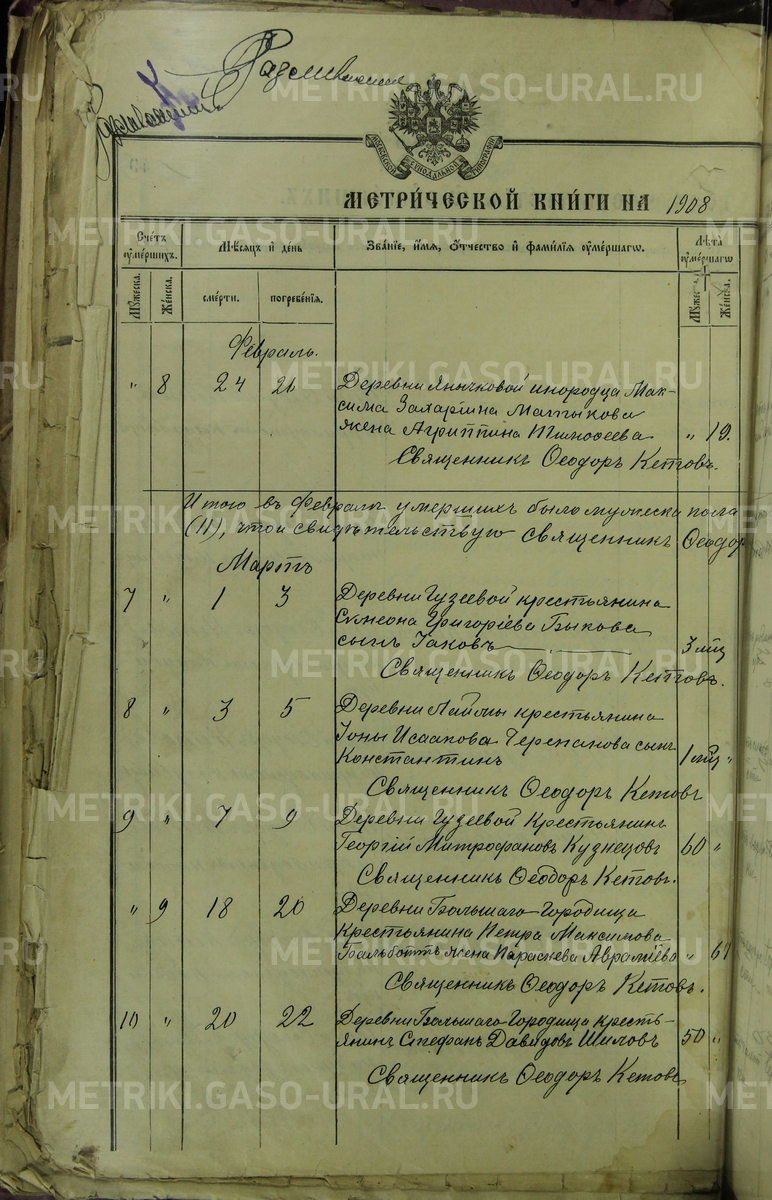 МЕТРИ́ЧЕСКОЙ КНИ́ГИ НА 1908
Счетъ ᲂумершихъ.
Мѣсяцъ и день
Званіе, имя, ѻтчество и фамилія ᲂумершагѡ.
Лѣта ᲂумершагѡ
Мꙋжеска.
Женска.
смерти.
погребенія.
Мꙋжес
Женска.
Февраль.
" 8 24 26 Деревни Янычковой инородца Мак-
сима Захаріина Матыкова
жена Агриппина Тимофеева " 19.
Священникъ Ѳеодоръ Кетовъ.
Итого въ Февралѣ умершихъ было мужеска пола
(11), что и свидѣтельствую священникъ Ѳеодор
Мартъ
7 " 1 3 Деревни Гузеевой крестьянина
Сумеона Григоріева Быкова
сынъ Іаковъ 3 мѣц
Священникъ Ѳеодоръ Кетовъ.
8 " 3 5 Деревни Лаймы крестьянина
Іоны Исаакова Черепанова сынъ
Константинъ 1 мѣц "
Священникъ Ѳеодоръ Кетовъ
9 " 7 9 Деревни Гузеевой крестьянинъ
Георгій Митрофановъ Кузнецовъ 60 "
Священникъ Ѳеодоръ Кетовъ.
" 9 18 20 Деревни Большаго-Городища
крестьянина Петра Максимова
жена Параскева Авраміева "
Священникъ Ѳеодоръ Кетовъ.
10 " 20 22 Деревни Большаго-Городища кресть-
янинъ Стефанъ Давидовъ Шиловъ 50 "
Священникъ Ѳеодоръ Кетовъ
METRIKI.GASO-URAL.RU